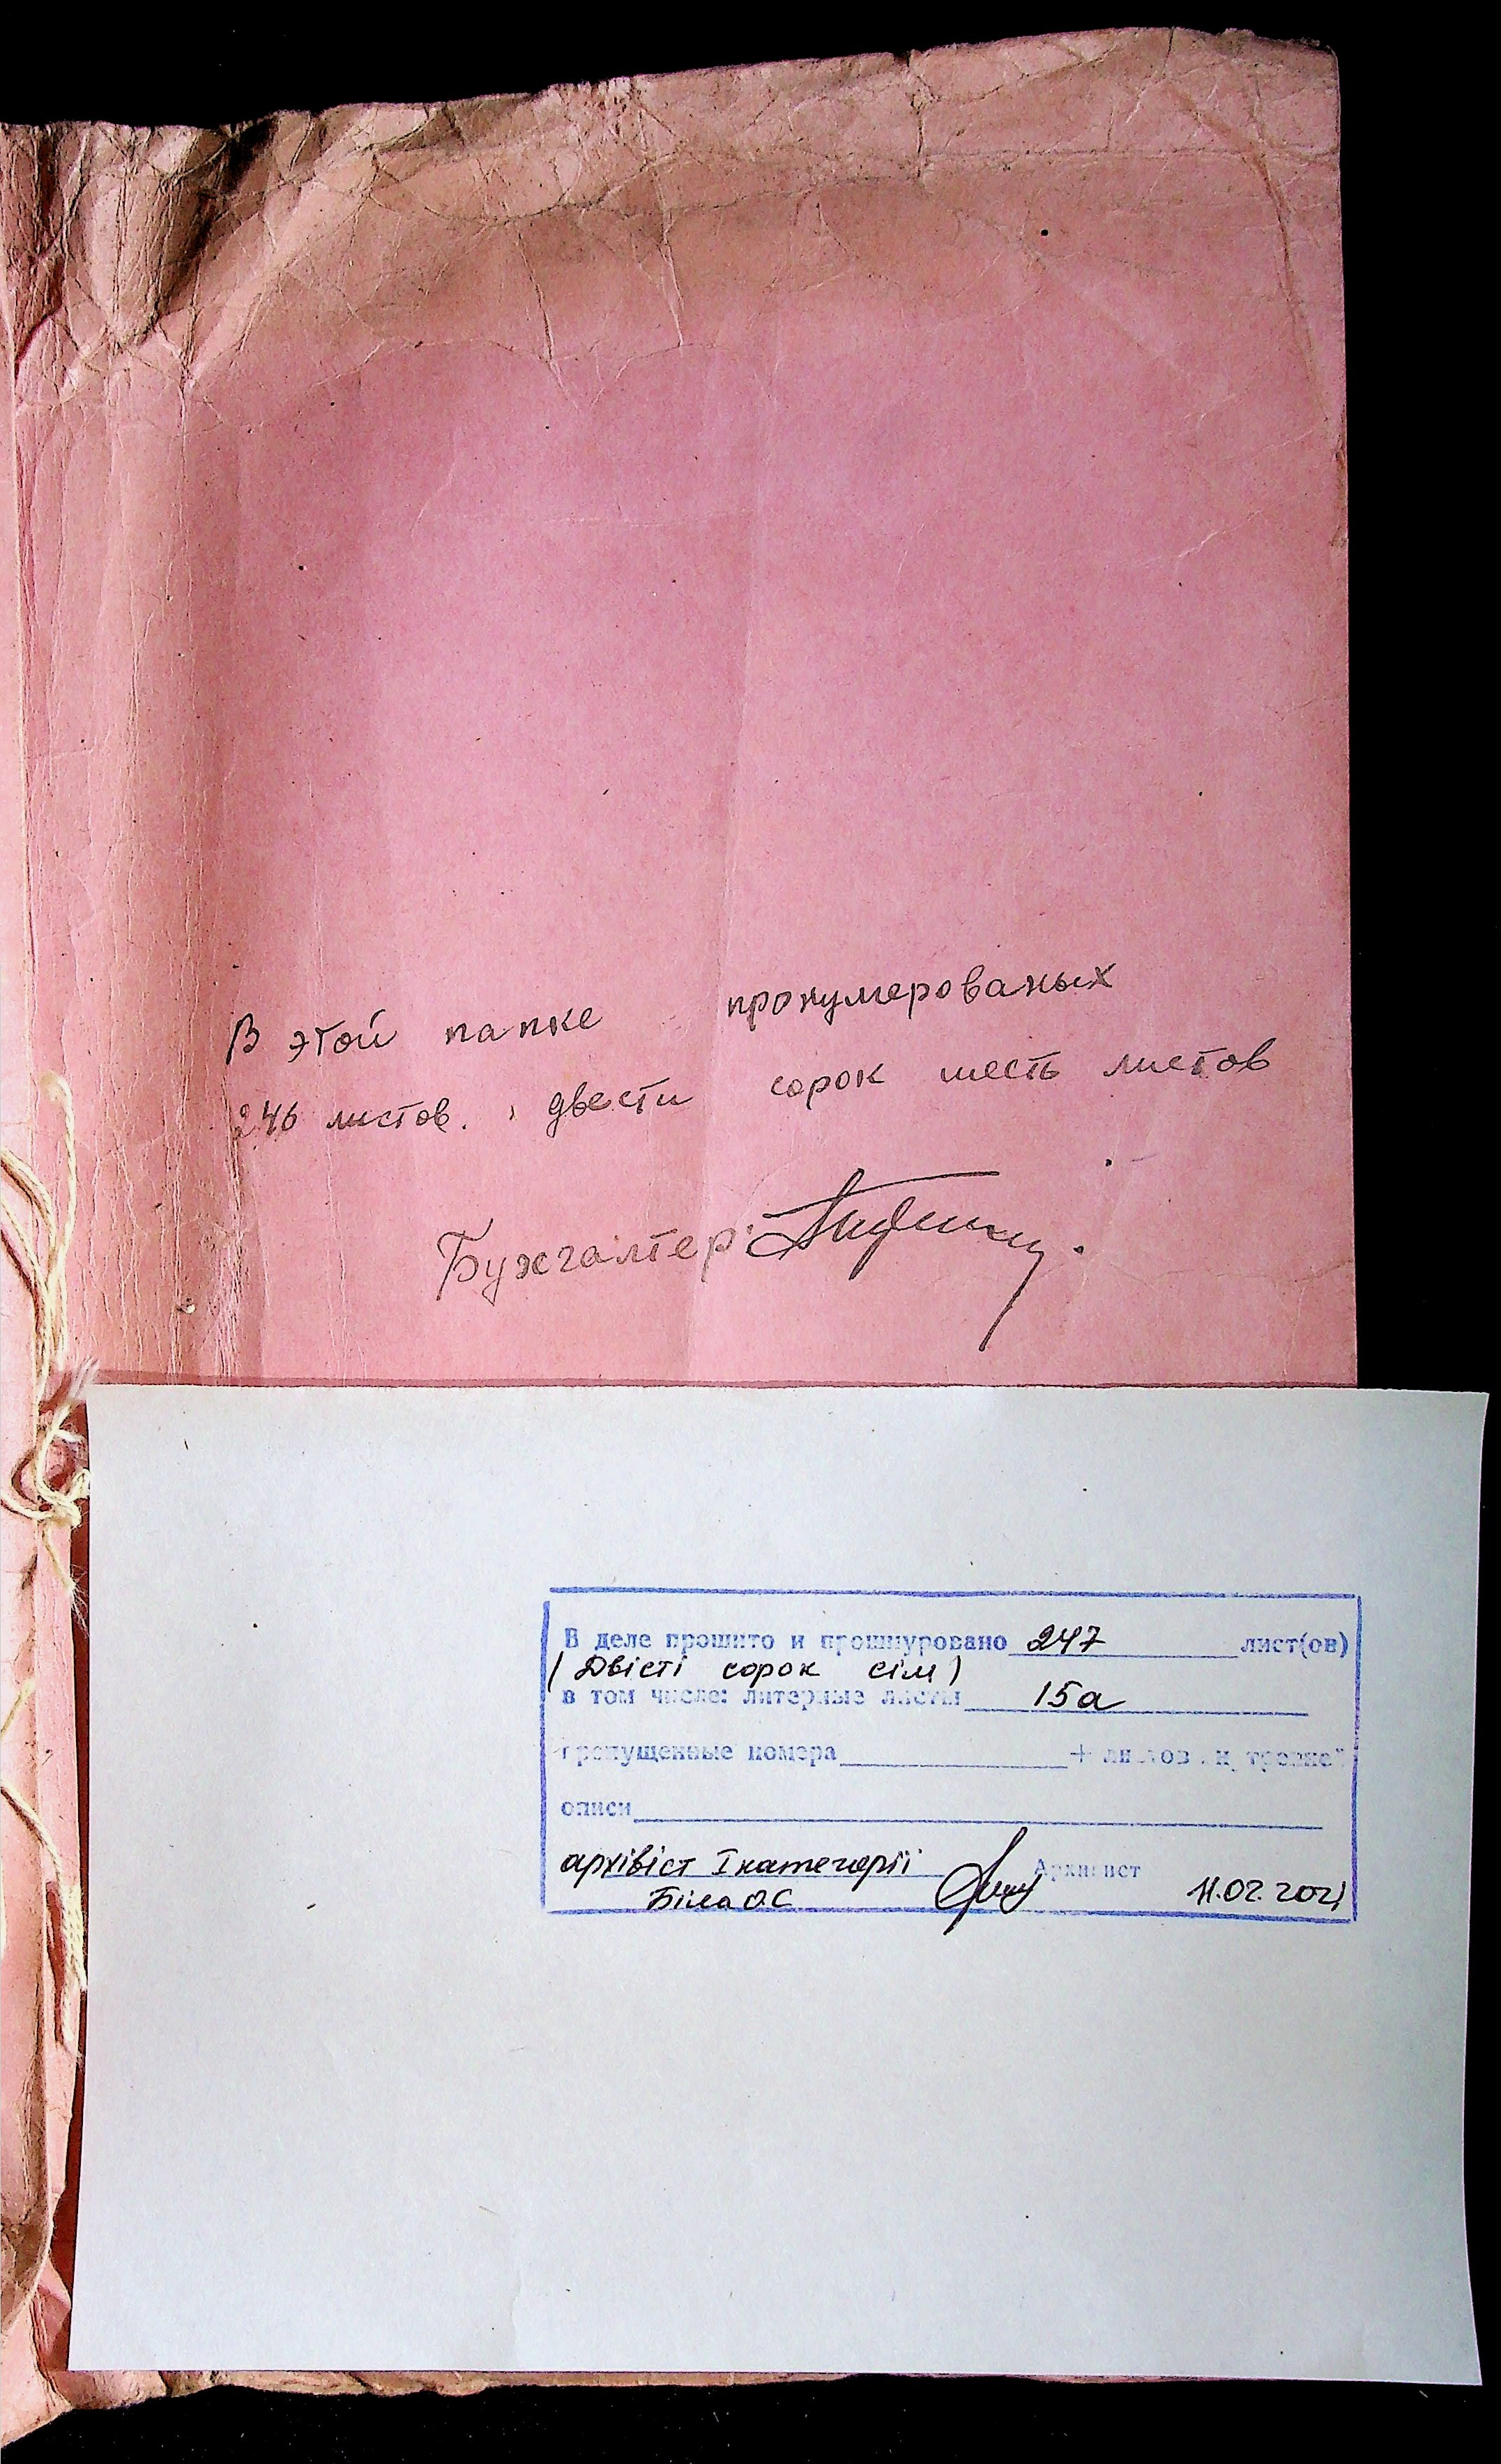 В этой папке пронумерованых
246 листов. двести сорок шесть листов
Бухгалтер:
В деле прошито и пронумеровано 247 лист(ов)
(Двісті сорок сім)
в том числе: литерные листы 15а
пропущенные номера + листов
описи
архівіст І категорії Архивист
Біла О.С. 11.02.2021